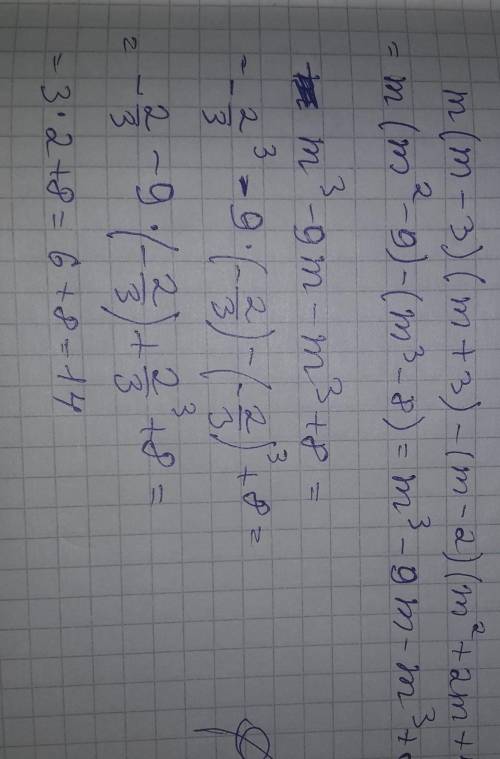 m(m-3)(m+3)-(m-2)(m²+2m+
=m(m²-9)-(m³-8)=m³-9m-m³+
m³-9m-m³+8=
=-2/3³-9·(-2/3)-(-2/3)³+8=
=-2/3-9·(-2/3)+2/3³+8=
=3·2+8=6+8=14